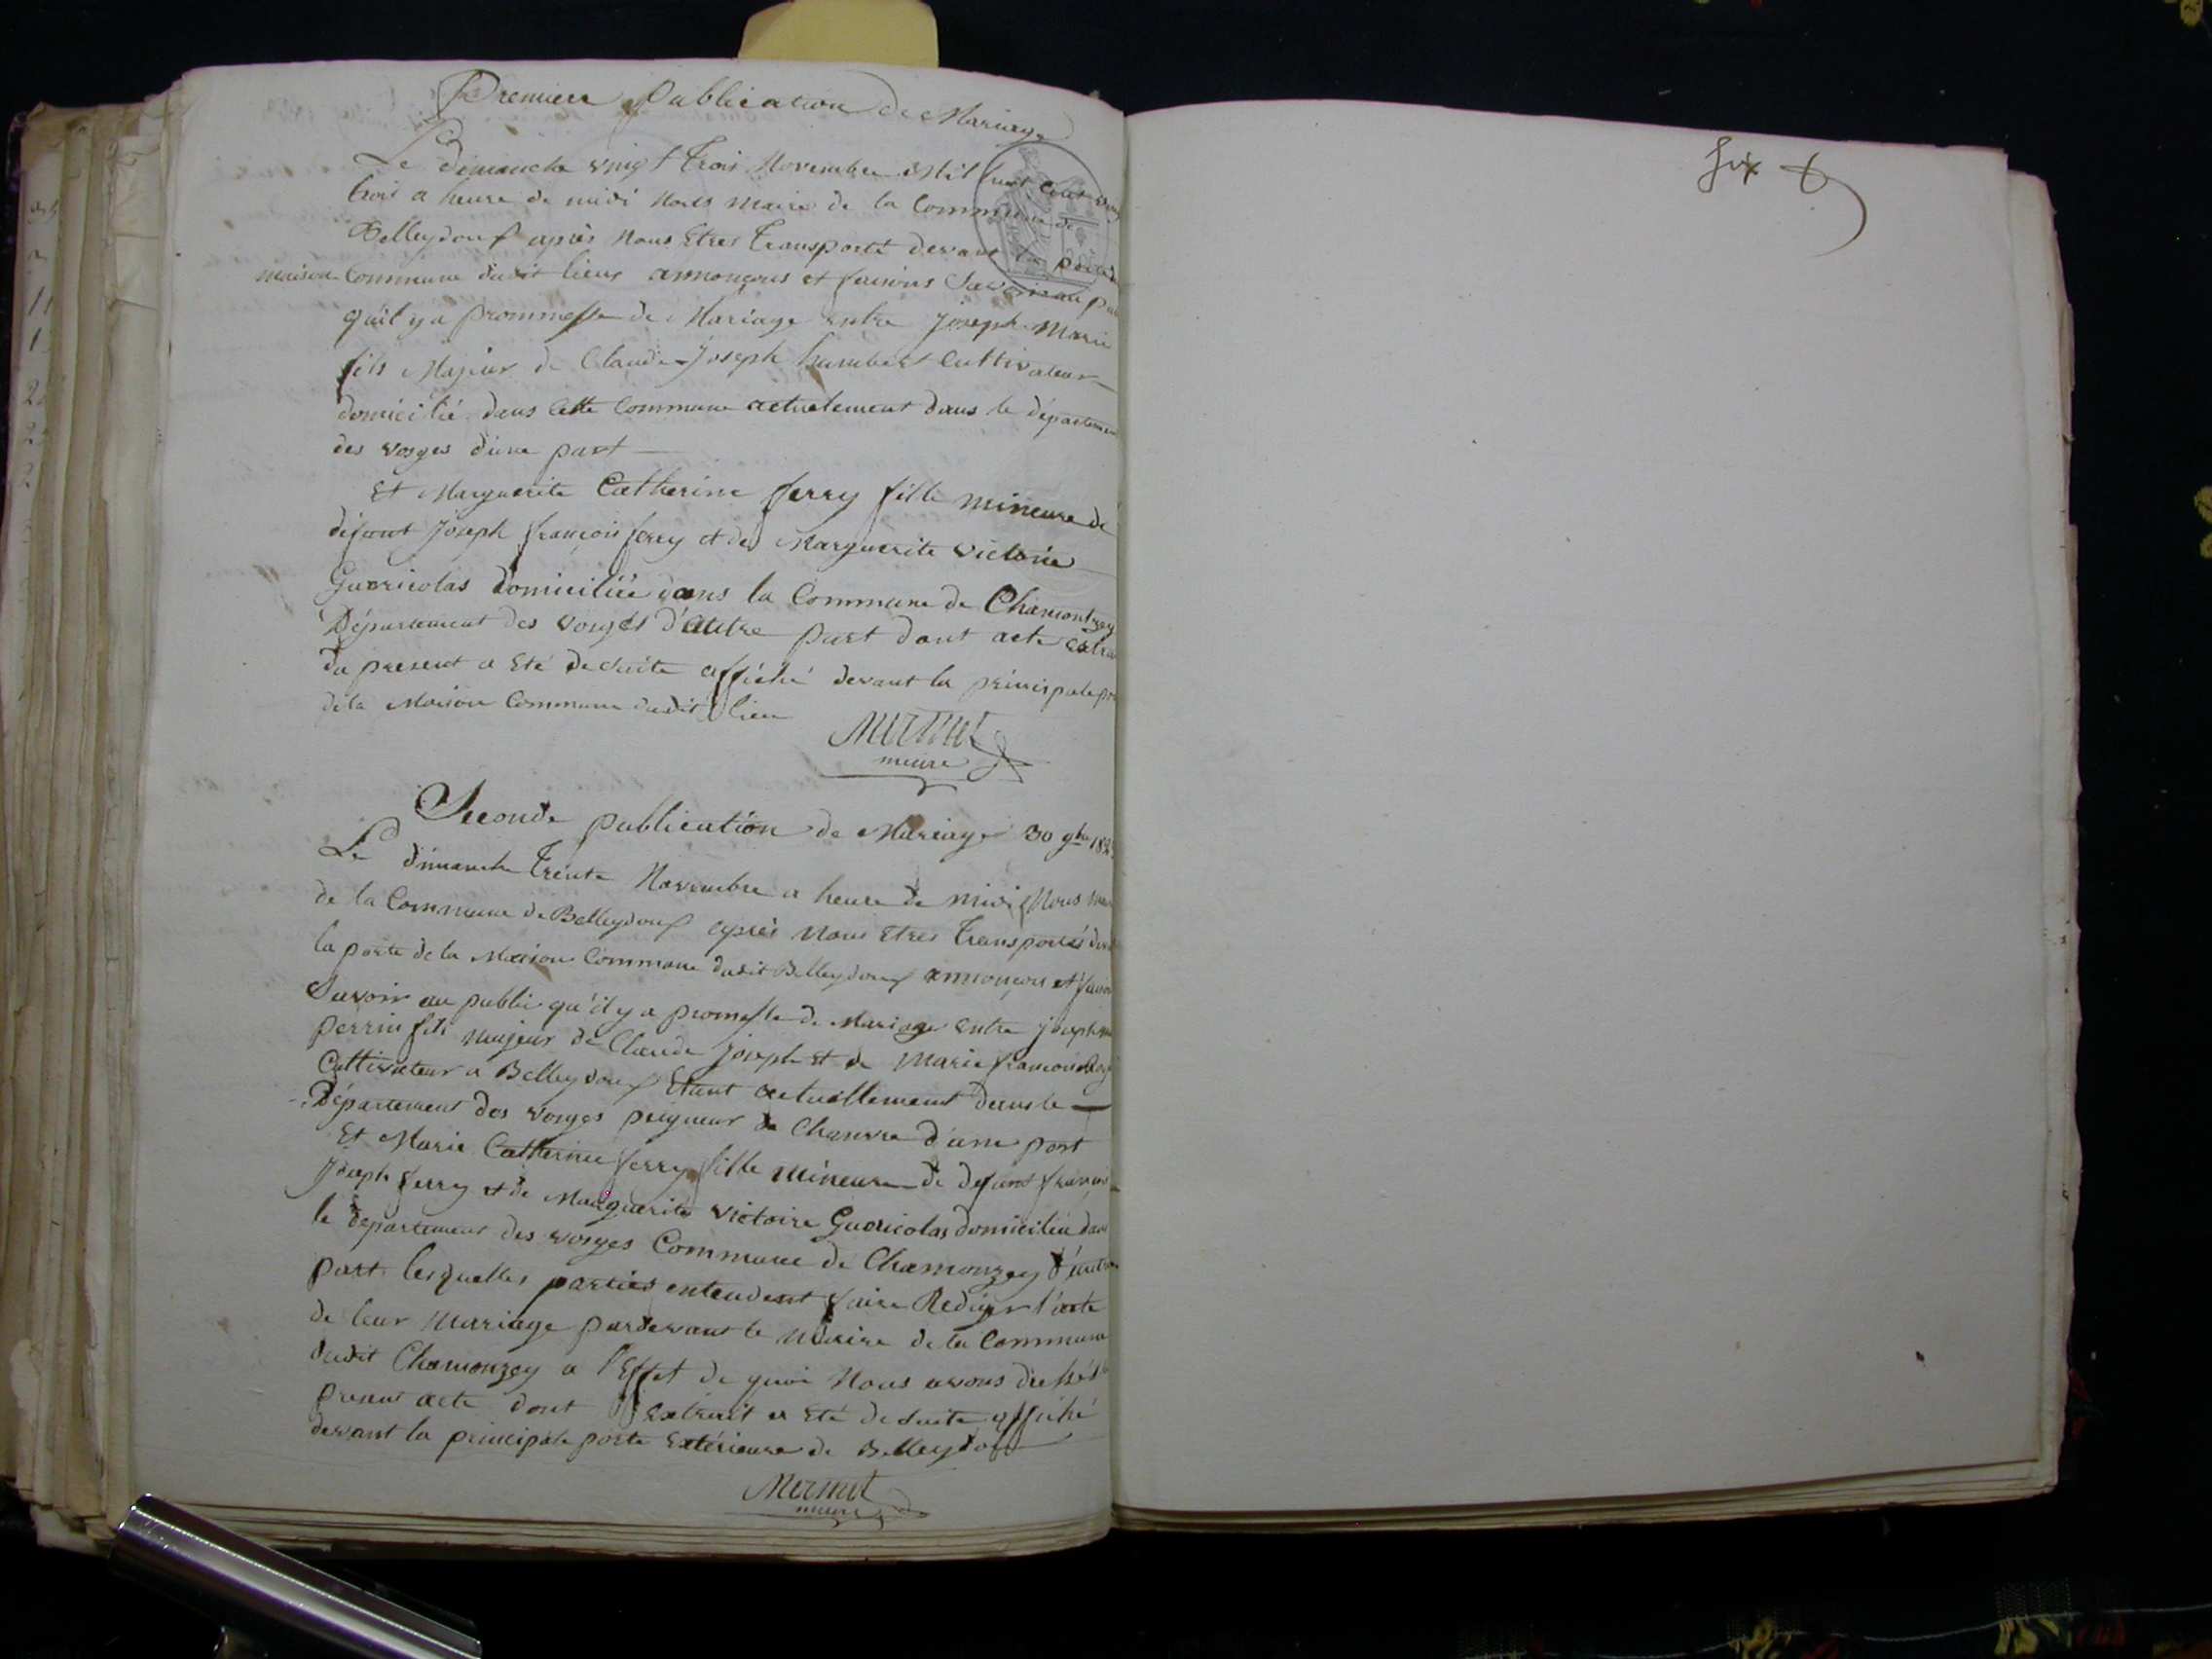 Premiere Publication de Mariage
Le dimanche vingt trois Novembre Mil huit cent vingt
trois a heure de midi Nous maire de la Commune de
Belleydoux après Nous Etres Transporté devant la porte
maison Commune dudit lieux annonçons et faisons Savoir au
qu'il y a prommesse de Mariage entre Joseph Marie
fils Majeur de Claude Joseph humbert Cultivateur
domicilié dans Cette Commune actuelement dans le département
des Vosges d'une part
Et Marguerite Catherine ferry fille mineure de
défunt Joseph françois ferry et de Marguerite Victoire
Guericolas domiciliée dans la Commune de Chamontzey
Département des Vosges d'autre part dont acte
du present a Eté de suite affiché devant la principale
de la Maison Commune dudit lieu
Mermet
maire
Seconde publication de Mariage 30 9bre
Le dimanche Trente Novembre a heure de midi Nous
de la Commune de Belleydoux après Nous Etres Transportés
la porte de la Maison Commune dudit Belleydoux annonçons et
Savoir au public qu'il y a promesse de Mariage entre joseph
perrin fils majeur de Claude joseph et de Marie françoise
Cultivateur a Belleydoux Etant actuellement dans le
Département des Vosges peigneur de Chanvre d'une part
Et Marie Catherine ferry fille mineure de defunt françois
Joseph ferry et de Marguerite Victoire Guericolas domiciliée dans
le departement des vosges Commune de Chamonzey d'autre
part lesquelles parties entendent faire Rediger l'acte
de leur Mariage pardevant le Maire de la Commune
dudit Chamonzey a l'Effet de quoi Nous avons dressé
present acte dont Extrait a Eté de suite affiché
devant la principale porte Extérieure de Belleydoux
Mermet
maire
six